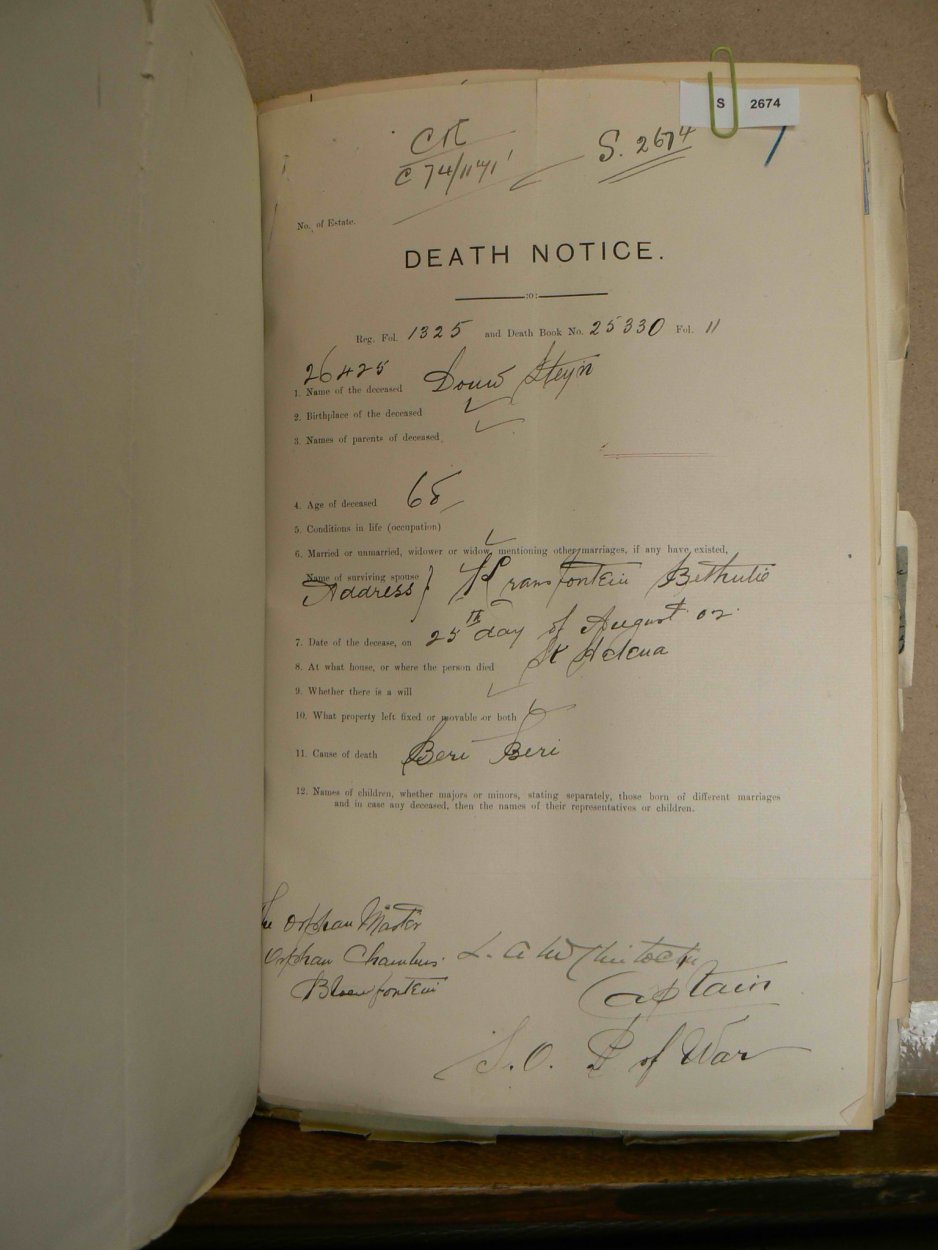 S 2674
CR
C 74/11471
S. 2674
No. of Estate.
DEATH NOTICE.
:o:
Reg. Fol. 1325 and Death Book No. 25330 Fol. 11
26425
1. Name of the deceased Douw Steyn
2. Birthplace of the deceased
3. Names of parents of deceased
4. Age of deceased 65
5. Conditions in life (occupation)
6. Married or unmarried, widower or widow, mentioning other marriages, if any have existed,
Name of surviving spouse
Address } Bethulie
7. Date of the decease, on 25th day of August 02.
8. At what house, or where the person died St Helena
9. Whether there is a will
10. What property left fixed or movable or both
11. Cause of death Beri Beri
12. Names of children, whether majors or minors, stating separately, those born of different marriages
and in case any deceased, then the names of their representatives or children.
The Orphan Master
Orphan Chambers.
Bloemfontein
Captain
S. O. P of War